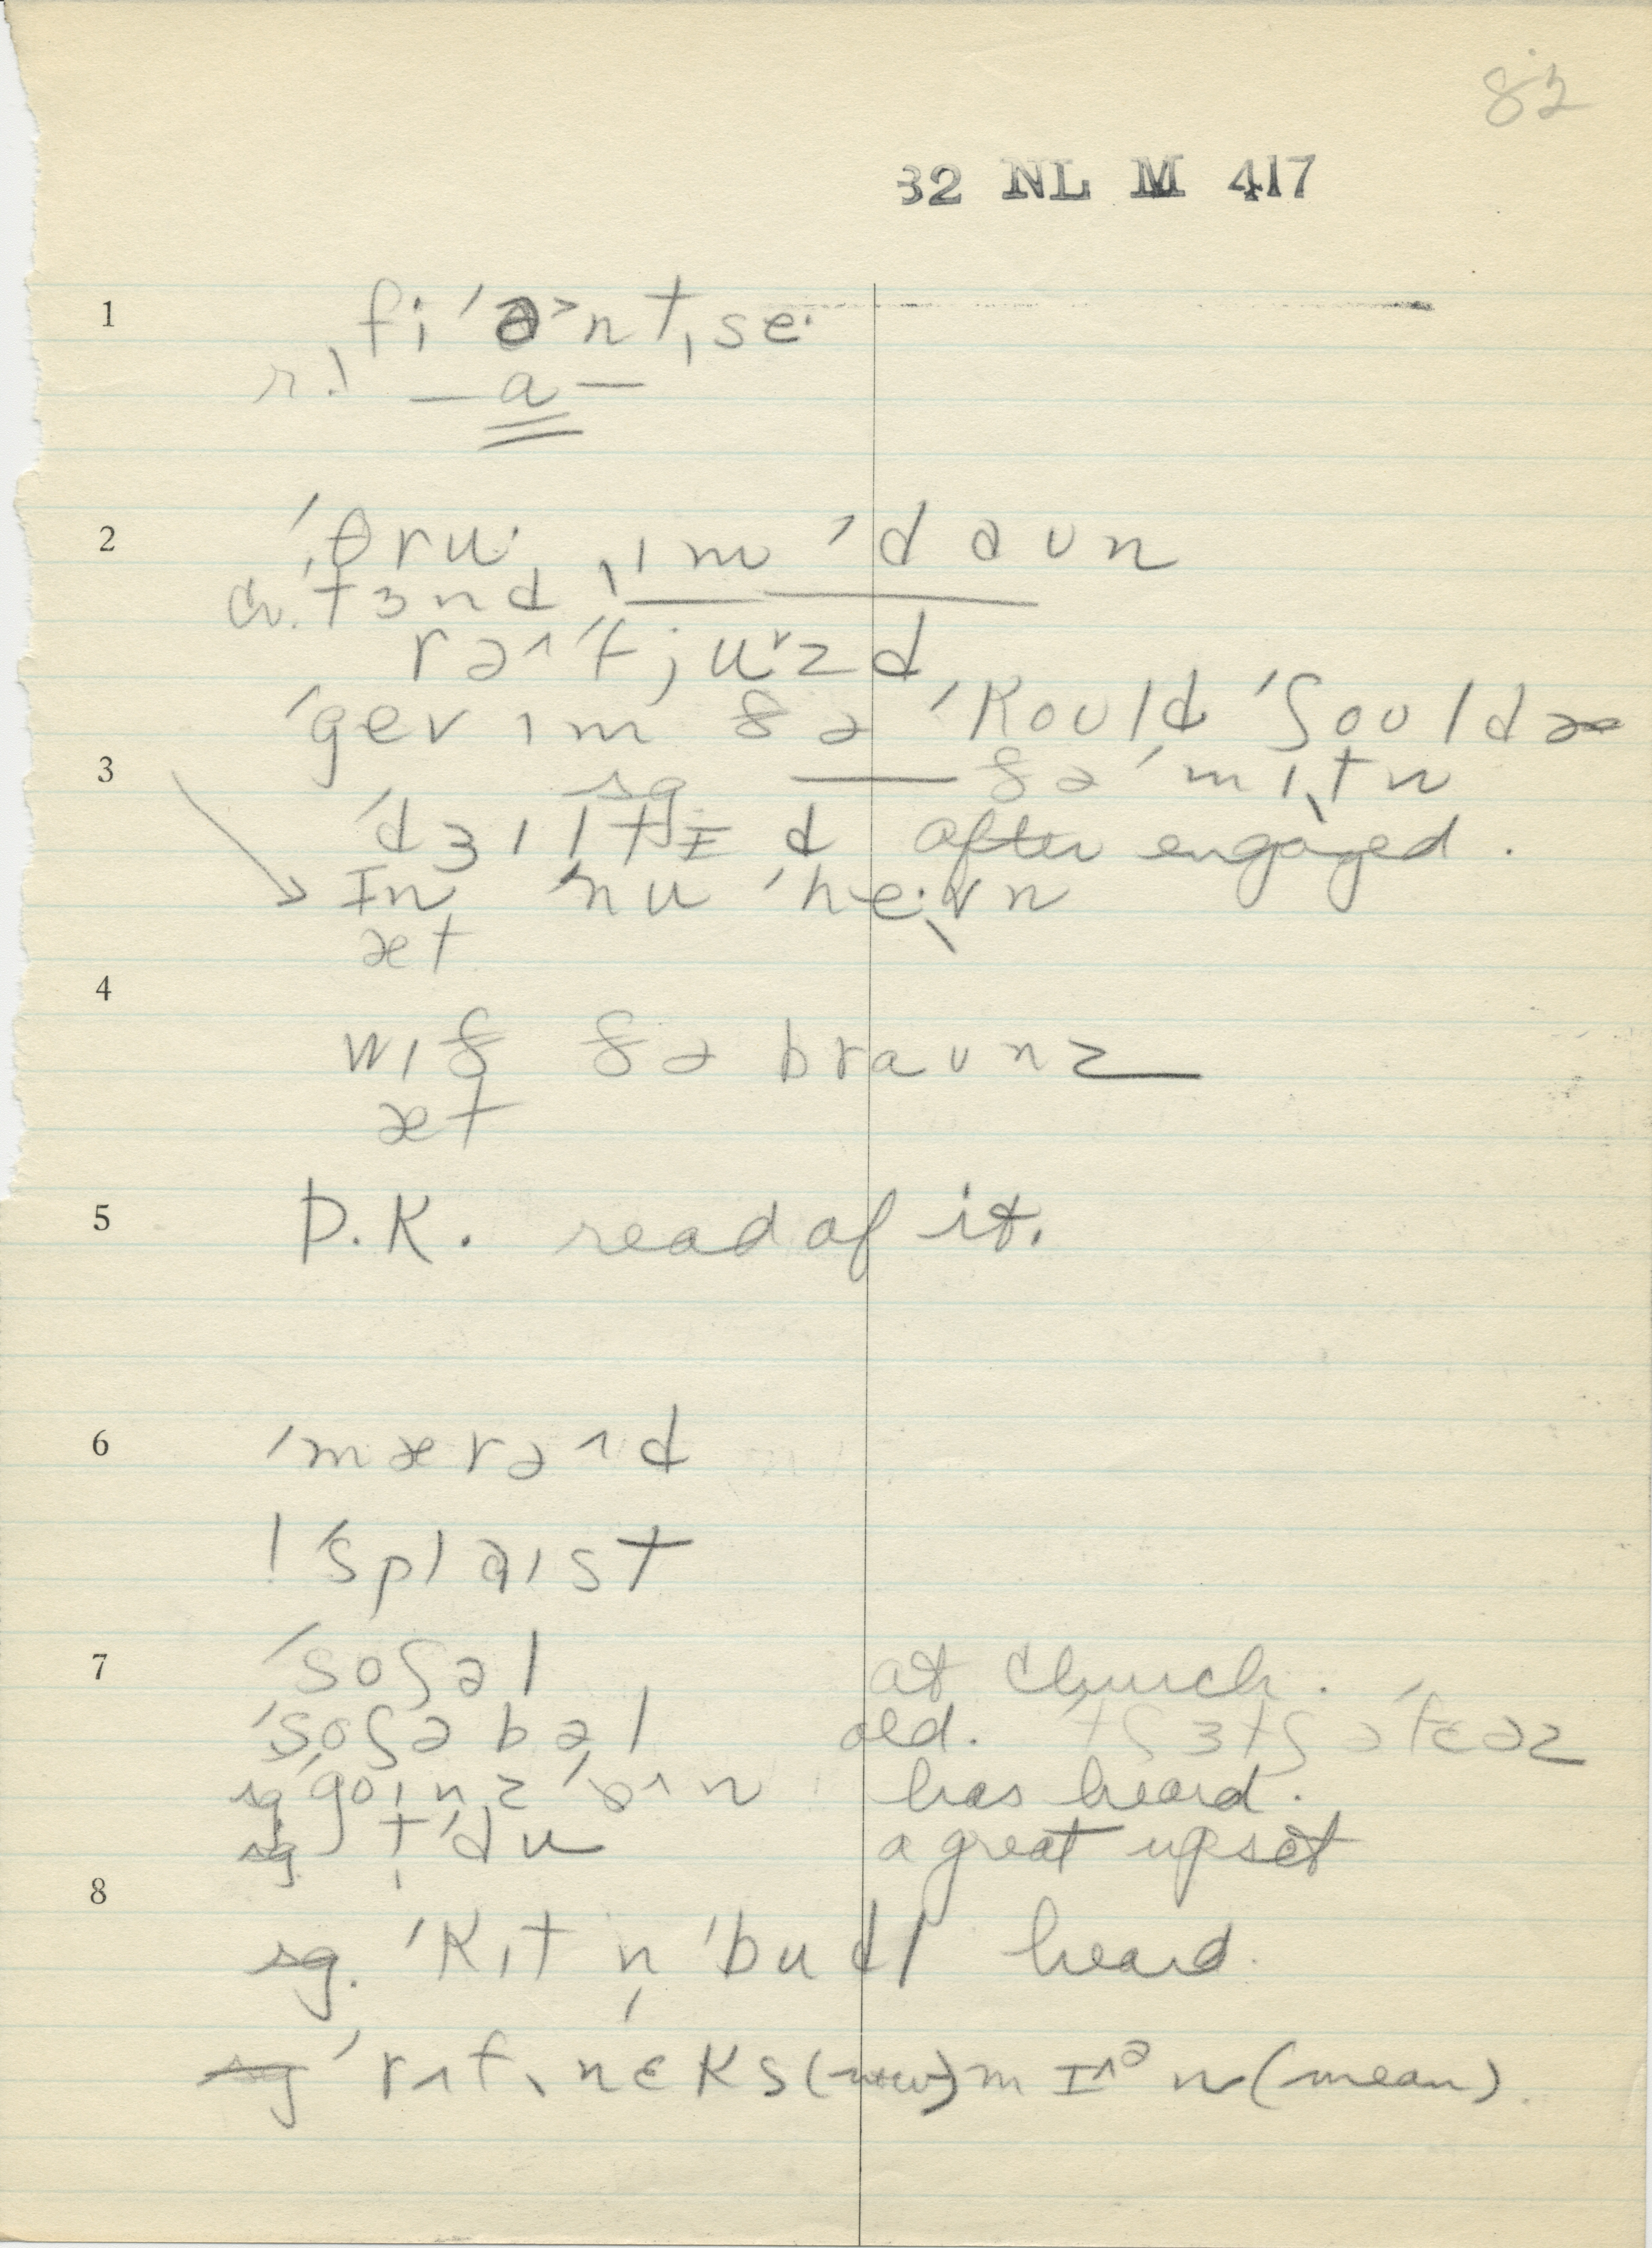 82
32 NL M 417
1 fi ˈɑ˃nt ˌse·
r.) — a —
2 ˈθru· ˌɪm ˈdaun
ch. tɜnd ˌɪ— —
rəˈfjuˑzd
ˈgev ɪm ðə ˈkould ˈʃouldɚ
3 sg — ðə ˈmɪtn
ˈdʒɪltɪd after engaged.
In ˈnu ˈheˑvn
æt
4
wɪð ðə braunz
æt
5 D.K. read of it.
6 ˈmærəd
! ˈsplaɪst
7 ˈsoʃəl at church.
ˈsoʃəbəl old. tʃɜtʃ əˈfɛəz
sg goɪnz ˈɒn has heard.
sg tˈdu a great upset
8
sg. ˈkɪt n ˈbudl heard.
sg ˈrʌf ˌnɛks (now) mɪˆᵊn (mean).